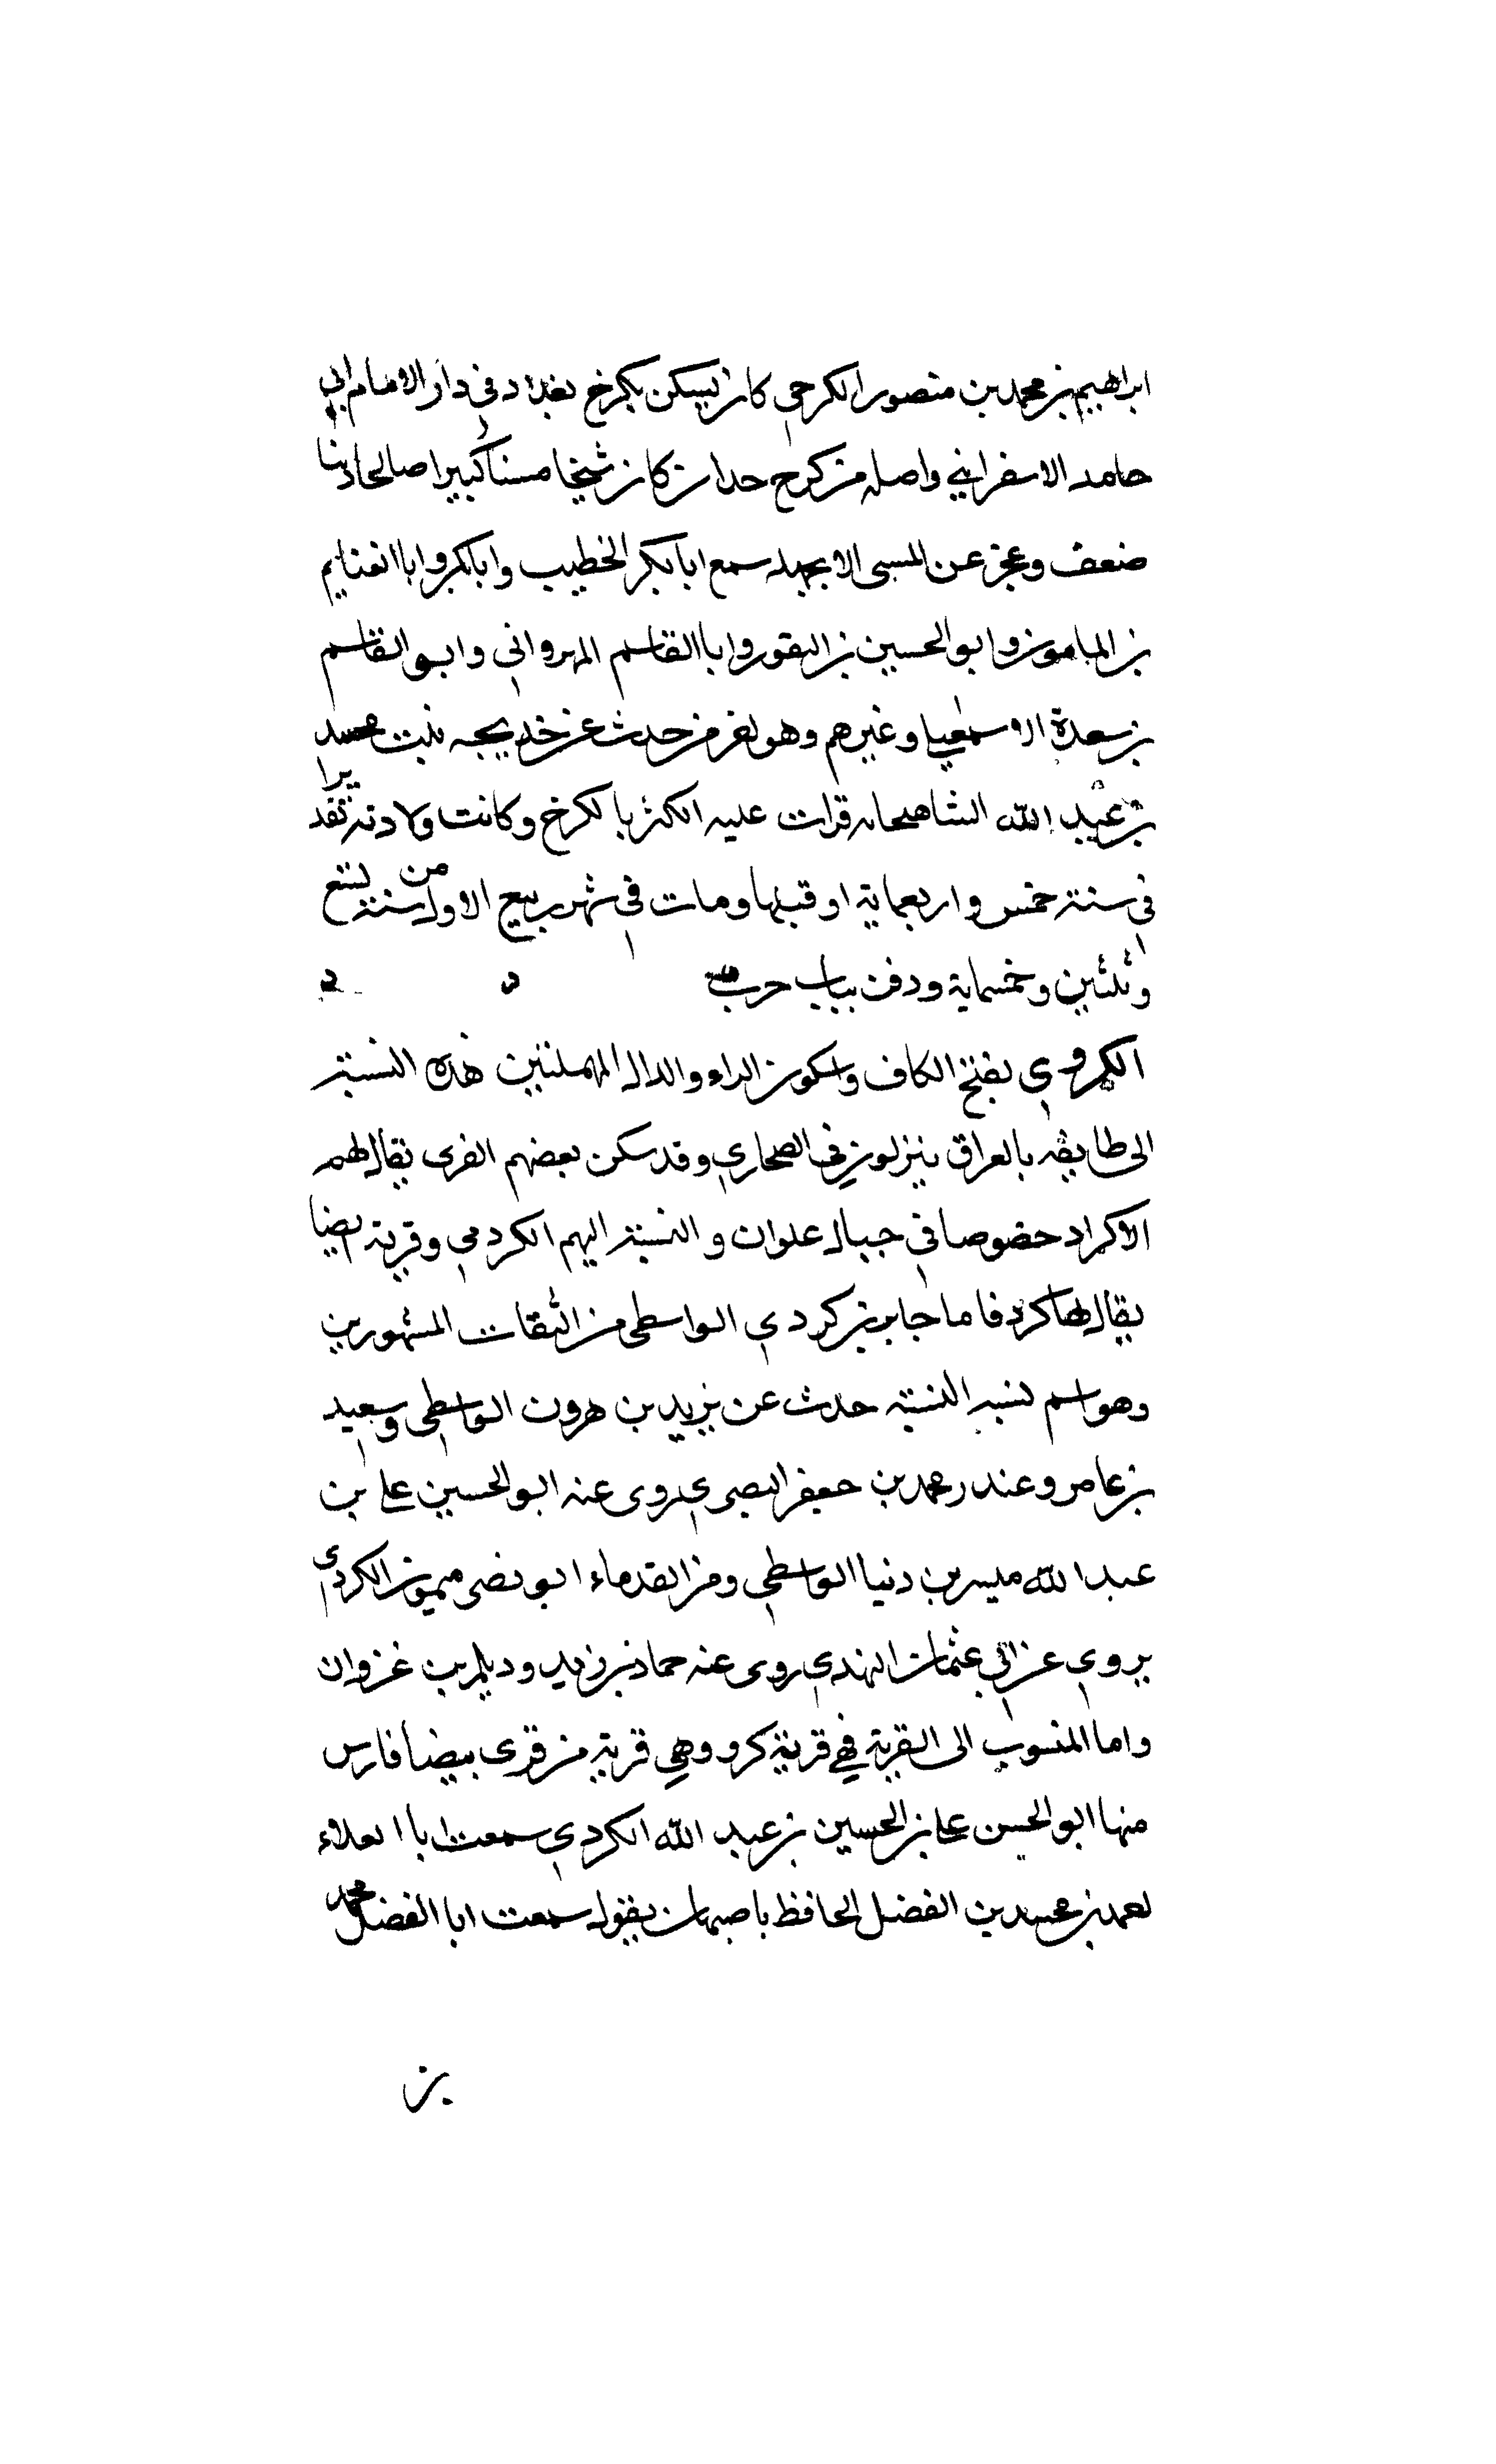 ابراهيم بن محمد بن منصور الكرجي كان يسكن بكرخ بغداد في دار الامام ابي
حامد الاسفرايني واصله من كرج حدان كان شيخا مسنا كبيرا صالحا دينا
ضعف وعجز عن المسى الا بجهله سمع ابا بكر الخطيب وابا بكر وابا الغنايم
بن المامون وابو الحسين بن النقور وابا القاسم المهرواني وابو القاسم
بن سعدة الاسمعيلي وغيرهم وهو لغر من حدث عن خديجه بنت محمد
بن عبد الله الشاهجانه قرات عليه الكثر بالكرخ وكانت ولادته تقديرا
في سنة خمس واربعماية او قبلها ومات في شهر ربيع الاول من سنة تسع
وثلثين وخمسماية ودفن بباب حرب
الكروي بفتح الكاف واسكون الراء والدال المهملتين هذه النسبة
الى طايفه بالعراق ينزلون في الصحاري وقد سكن بعضهم القرى يقال لهم
الاكراد خصوصا في جبال علوان والنسبة اليهم الكردي وقرية ايضا
يقال لها كرد فاما جابر بن كردي الواسطي من الثقات المشهورين
وهو اسم لنسبه النسبة حدث عن يزيد بن هرون الواسطي وسعيد
بن عامر وعندر محمد بن جعفر البصري روى عنه ابو الحسين علي بن
عبد الله ميسر بن دنيا الواسطي ومن القدماء ابو نصى ميمون الكردي
يروي عن ابي عثمان النهدي روى عنه حماد بن زيد وديلم بن غزوان
واما المنسوب الى القرية فهي قرية كرو وهي قرية من قرى بيضا فارس
منها ابو الحسن علي بن الحسين بن عبد الله الكردي سمعت ابا العلاء
احمد بن محمد بن الفضل الحافظ باصبهان يقول سمعت ابا الفضل محمد
بن